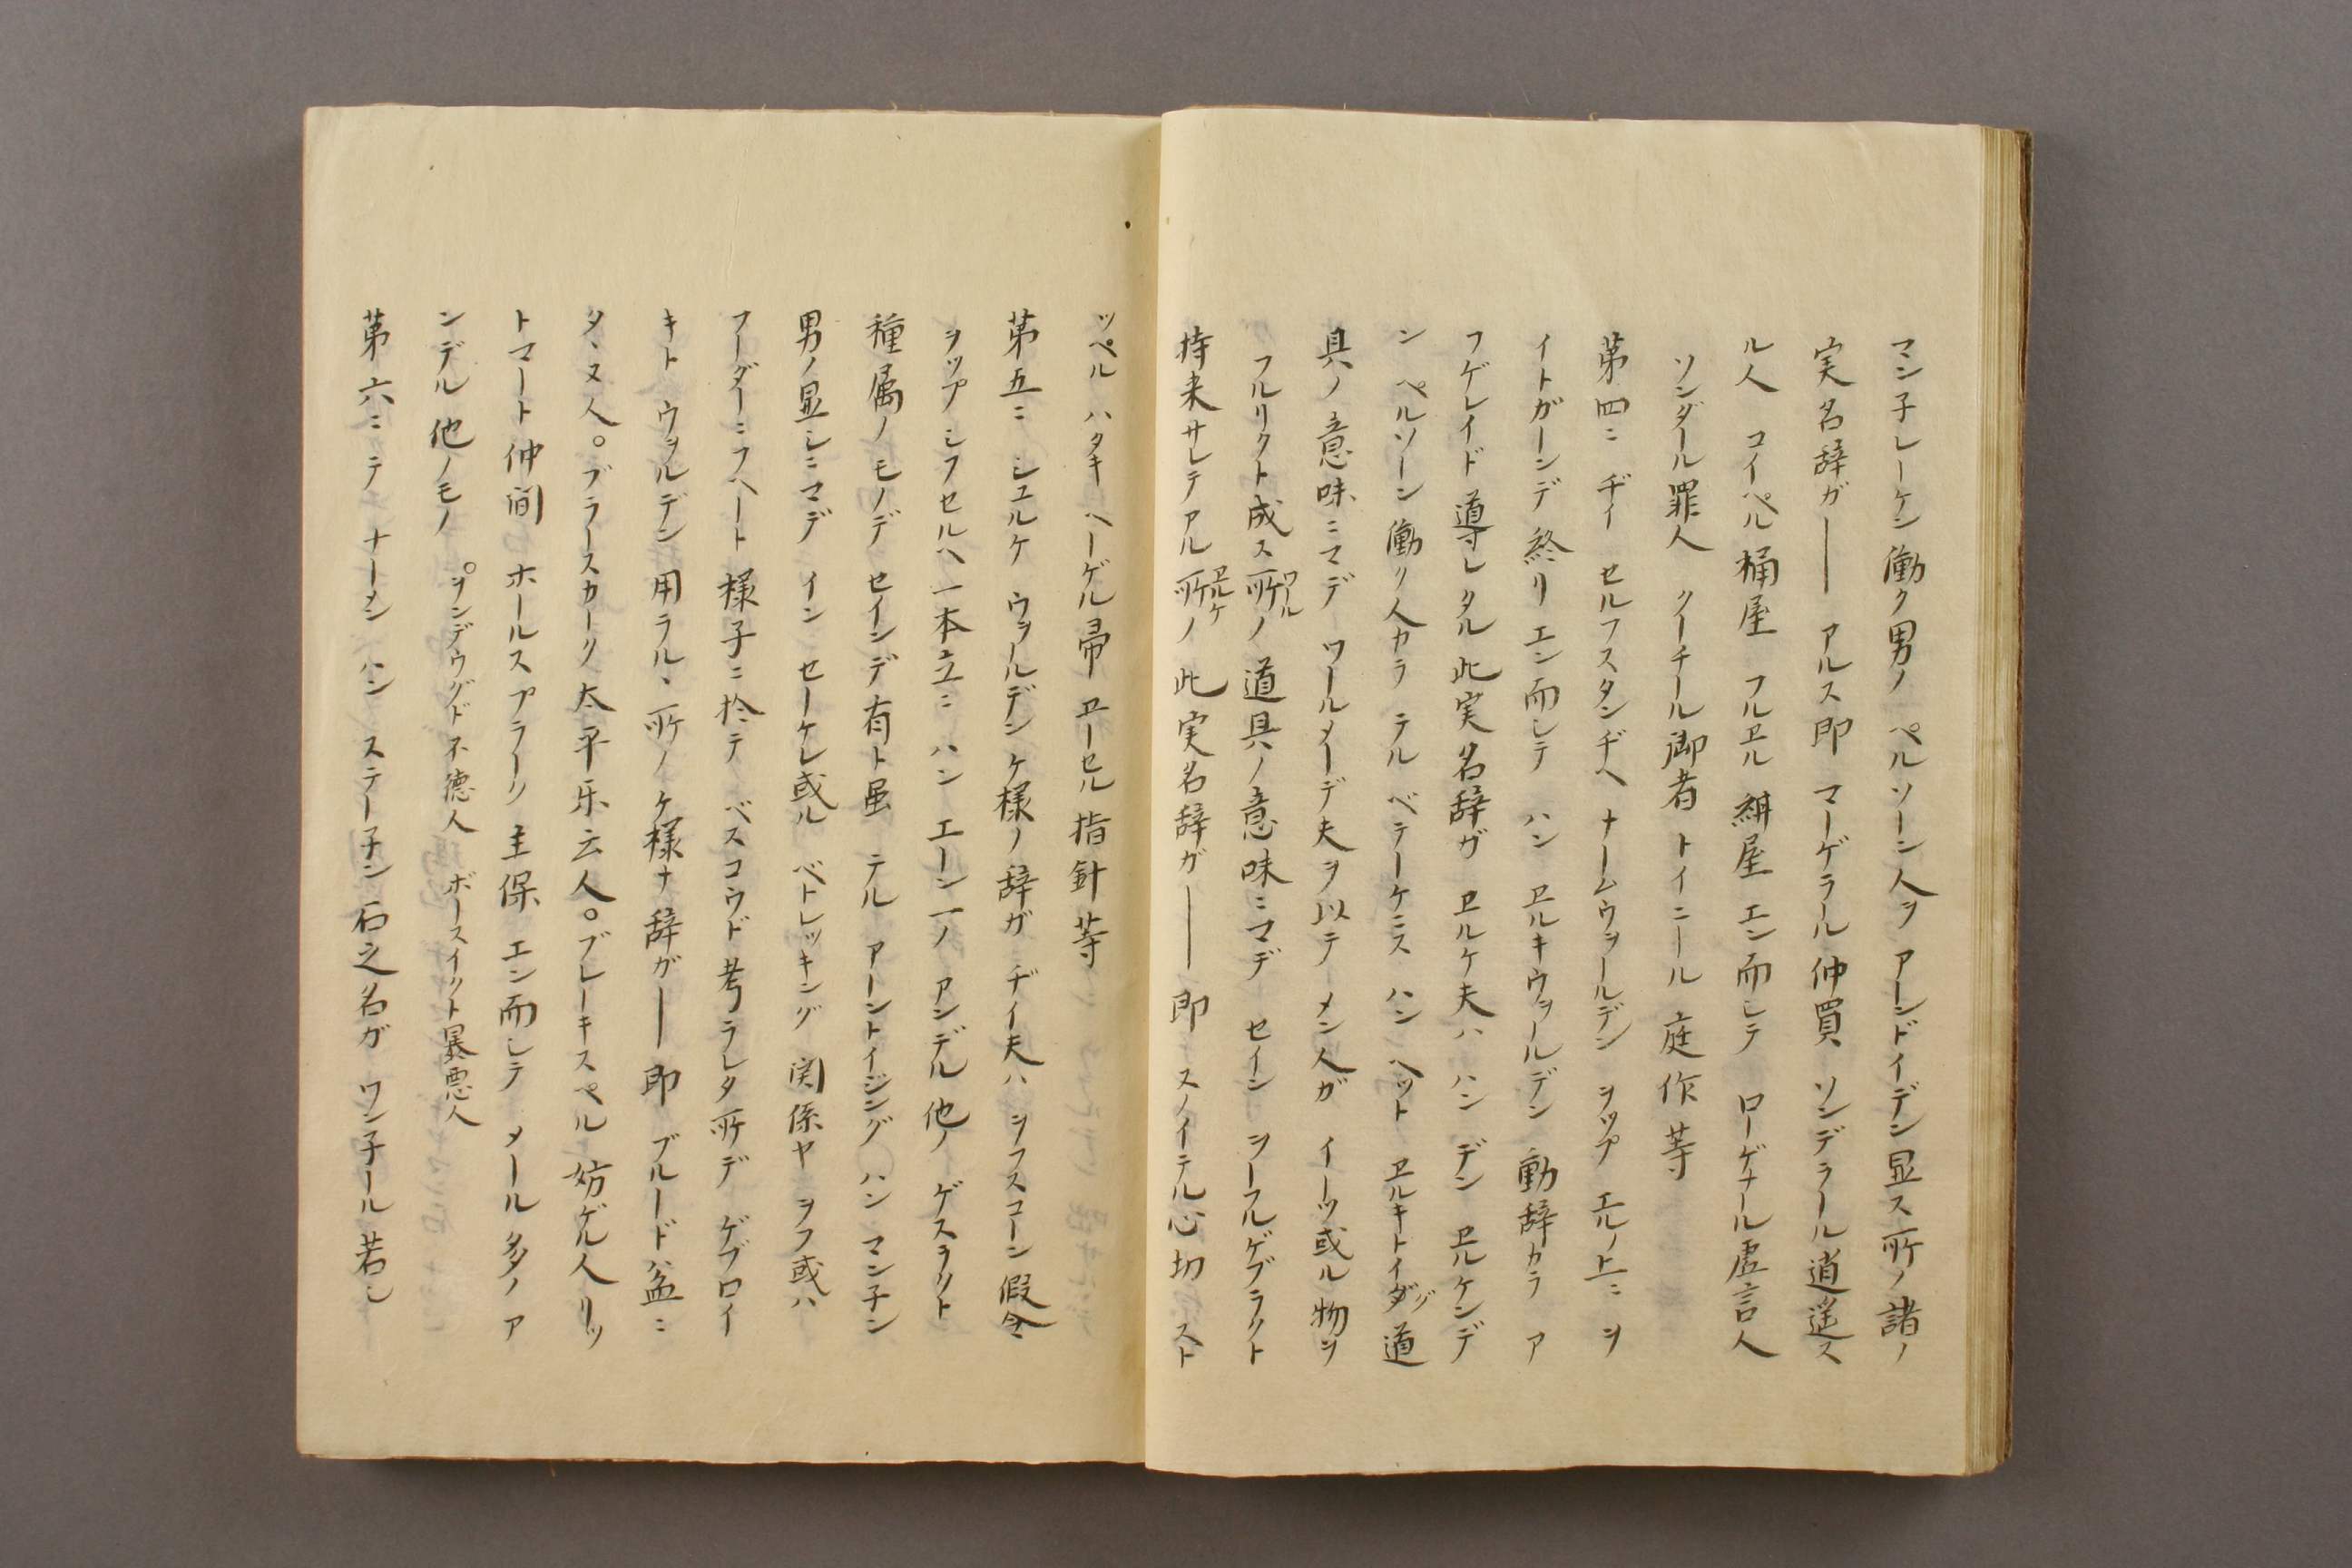 マン子レーケン 働ク男ノ ペルソーン人ヲ アーンドイデン显ス所ノ諸ノ
実名辞ガ── アルス即 マーゲラール仲買 ソンデラール逍遥ス
ル人 コイペル桶屋 フルヱル 紺屋 エン而シテ ローゲナール虚言人
ソンダール罪人 クーチール御者 トイニール 庭作 等
第四ニ ヂイ セルフスタンヂヘ ナームウヲールデン ヲップ ヱルノ上ニ ヲ
イトガーンデ 終リ エン而シテ ハン ヱルキウヲールデン 動辞カラ ア
フゲレイド 導レタル 此実名辞ガ ヱルケ夫ハ ハン デン ヱルケンデ
ン ペルソーン 働ク人カラ テル ベテーケニス ハン ヘット ヱルキトイグ 道
具ノ意味ニマデ ワールメーデ夫ヲ以テ メン人ガ イーツ或ル物ヲ
フルリクト成ス所ワールノ 道具ノ意味ニマデ セイン ヲーフルゲブラクト
持来サレテアル 所ヱルケノ 此実名辞ガ── 即 スノイテル心切 スト
ッペル ハタキ ヘーゲル帚 ヱーセル指針 等
第五ニ シユルケ ウヲールデンケ様ノ辞ガ ヂイ夫ハ ヲフスコーン 假令
ヲップ シフセルヘ一本立ニ ハン エーン一ノ アンデル他ノ ゲスラクト
種属ノモノデ セインデ有ト虽 テル アーントイジング ハン マン子ン
男ノ显シニマデ イン セーケレ或ル ベトレッキング 関係ヤ ヲフ或ハ
フーダーニフヘート 様子ニ於テ ベスコウド考ラレタ所デ ゲブロイ
キト ウヲルデン 用ラル、所ノケ様ナ 辞ガ── 即 ブルード盆ニ
タ、ヌ人。ブラースカーク 太平乐云人。ブレーキスペル 妨ゲル人リッ
トマート仲間 ホールスプラーク 主保 エン而シテ メール 多ノ ア
ンデル 他ノモノ 。ヲンデウグド 不徳人 ボースイット暴悪人
第六ニ テ ナーメン ハン ステー子ン 石之名ガ ワン子ール若シ